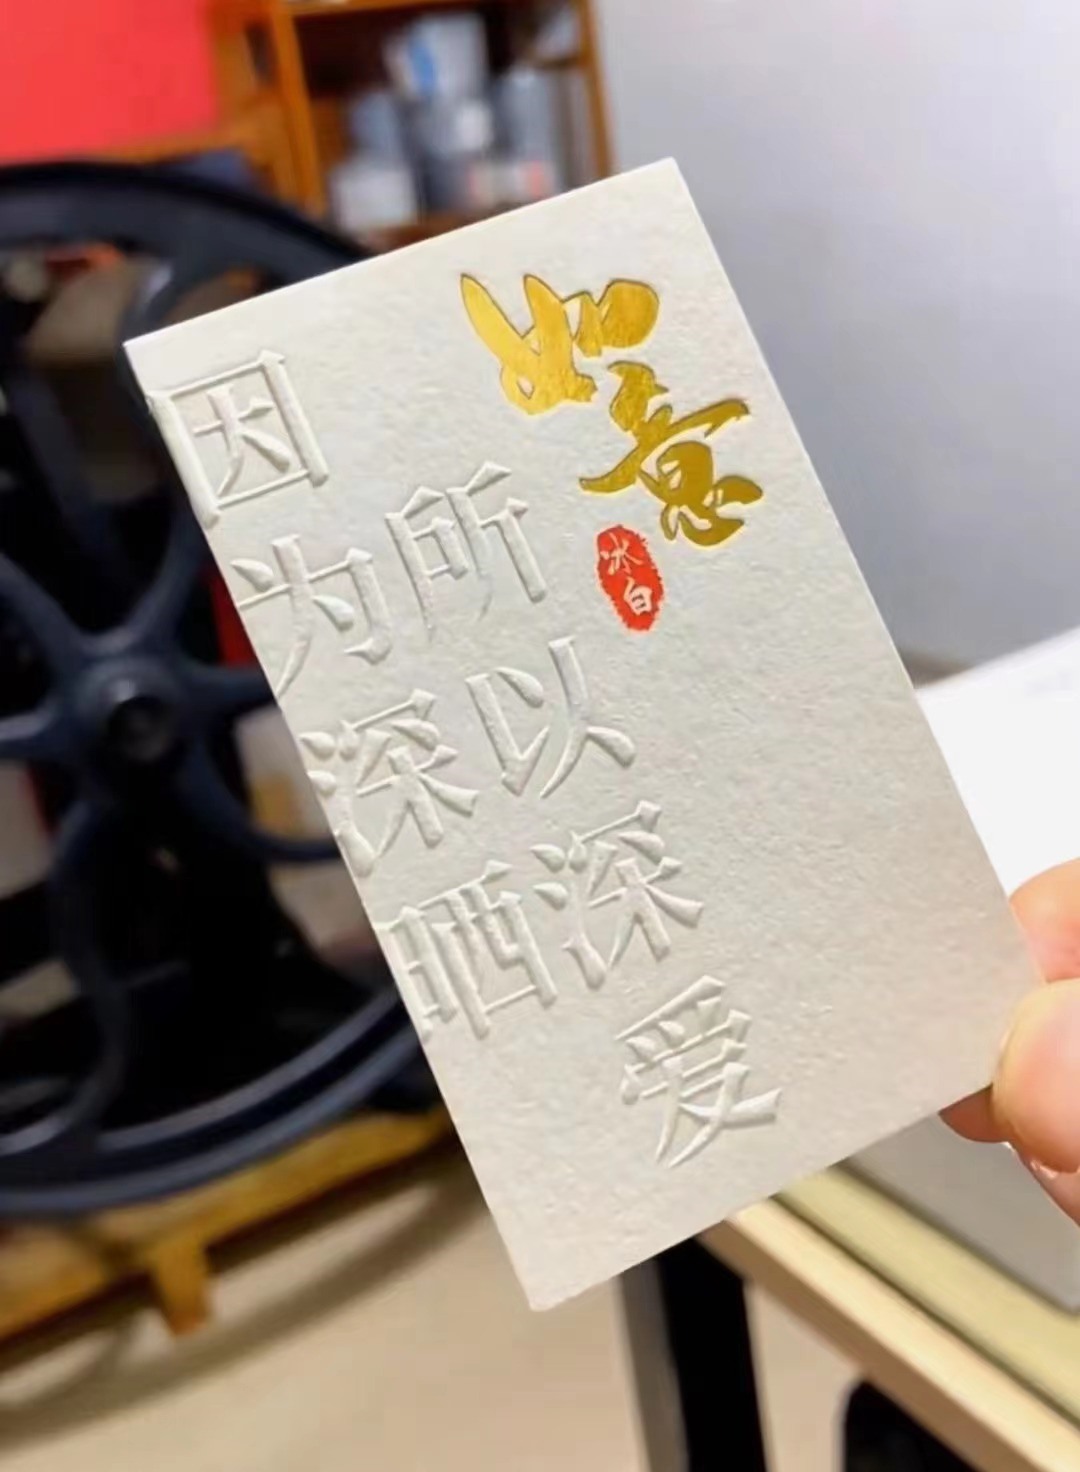 如意
冰白
因为深晒
所以深爱